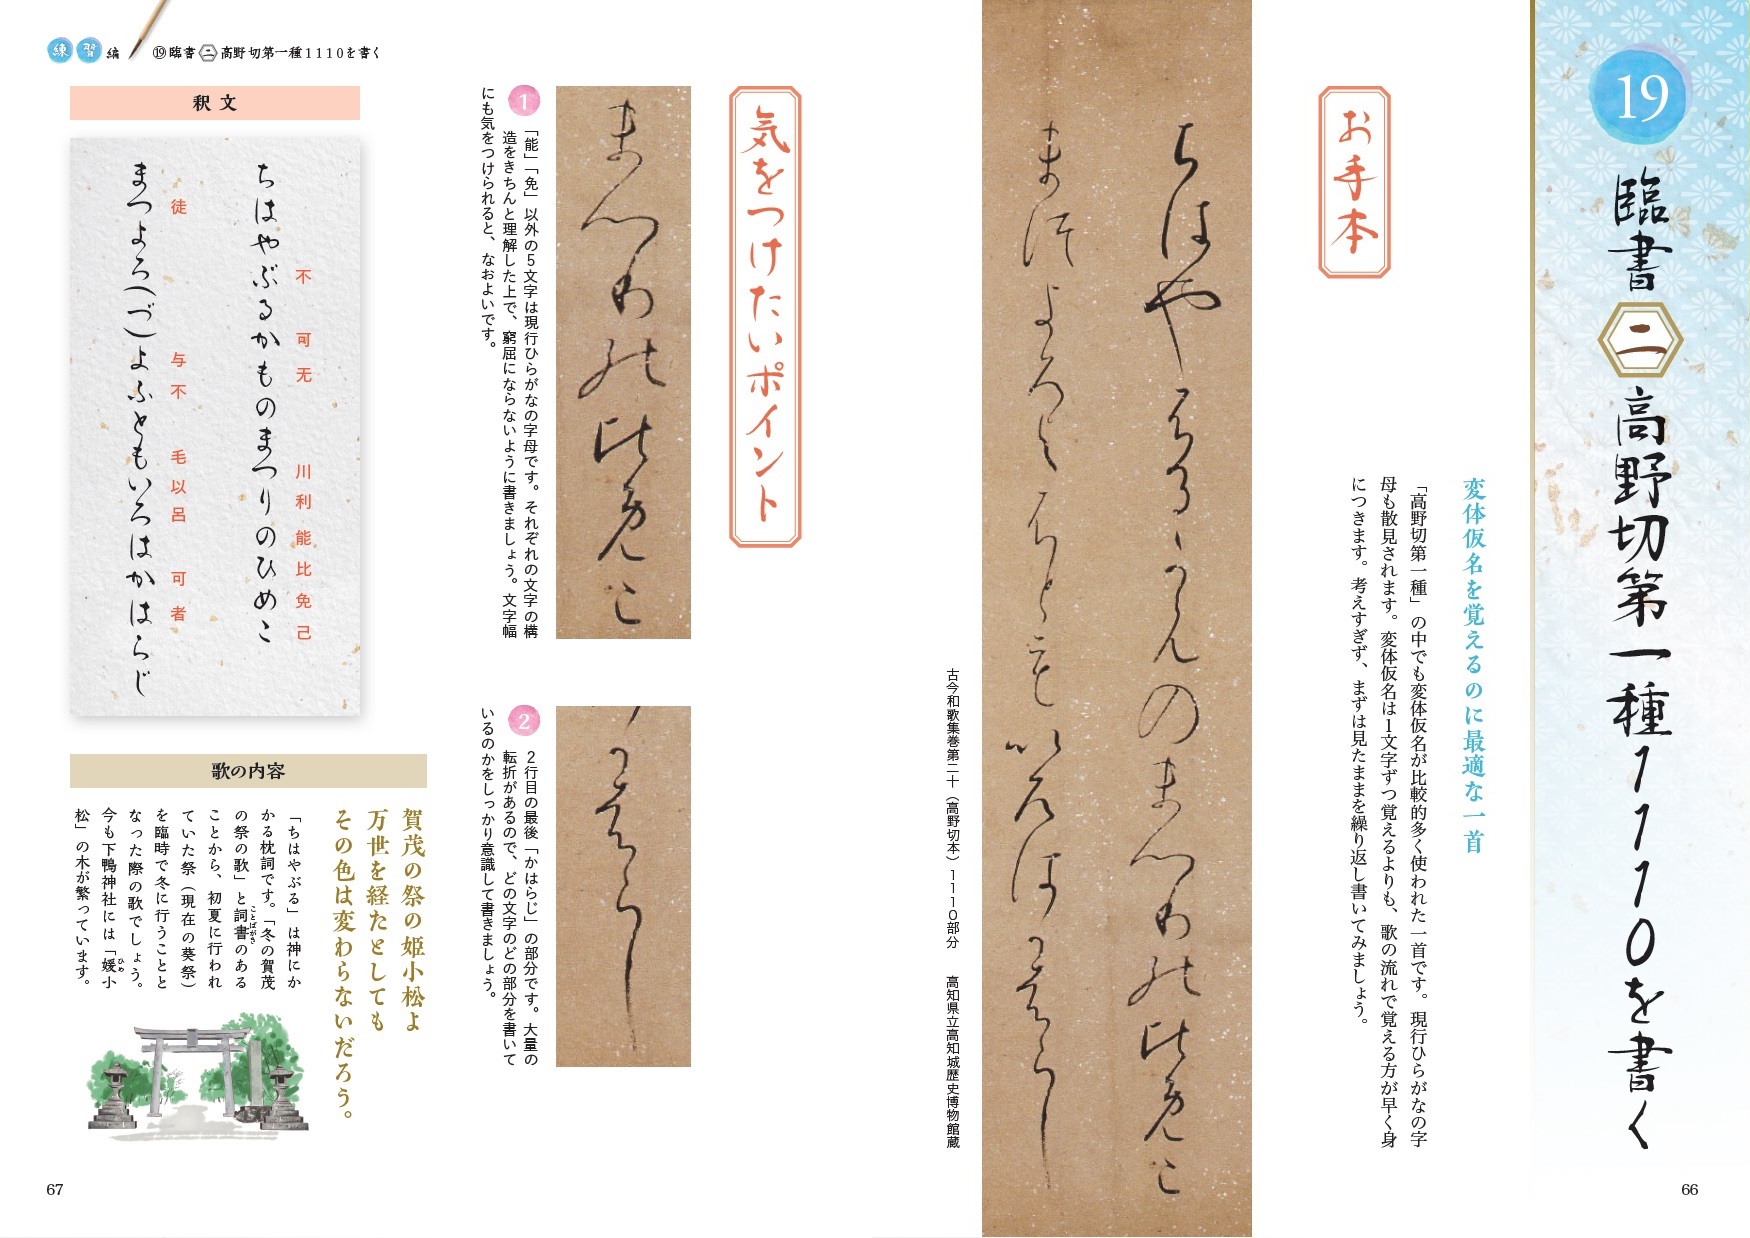 19
臨書 二 高野切第一種1110を書く
変体仮名を覚えるのに最適な一首
「高野切第一種」の中でも変体仮名が比較的多く使われた一首です。現行ひらがなの字
母も散見されます。変体仮名は1文字ずつ覚えるよりも、歌の流れで覚える方が早く身
につきます。考えすぎず、まずは見たままを繰り返し書いてみましょう。
お手本
ちはやふるかものまつりのひめこ
まつよろつよふともいろはかはらし
古今和歌集巻第二十(高野切本)1110部分 高知県立高知城歴史博物館蔵
66
練習編 ⑲臨書 二 高野切第一種1110を書く
気をつけたいポイント
まつりのひめこ
1
「能」「免」以外の5文字は現行ひらがなの字母です。それぞれの文字の構
造をきちんと理解した上で、窮屈にならないように書きましょう。文字幅
にも気をつけられると、なおよいです。
かはらし
2
2行目の最後「かはらじ」の部分です。大量の
転折があるので、どの文字のどの部分を書いて
いるのかをしっかり意識して書きましょう。
釈文
不 可 无 川 利 能 比 免 己
ちはやぶるかものまつりのひめこ
徒 与 不 毛 以 呂 可 者
まつよろ(づ)よふともいろはかはらじ
歌の内容
賀茂の祭の姫小松よ
万世を経たとしても
その色は変わらないだろう。
「ちはやぶる」は神にか
かる枕詞です。「冬の賀茂
の祭の歌」と詞書のある
ことばがき
ことから、初夏に行われ
ていた祭(現在の葵祭)
を臨時で冬に行うことと
なった際の歌でしょう。
今も下鴨神社には「媛小
ひめ
松」の木が繁っています。
67